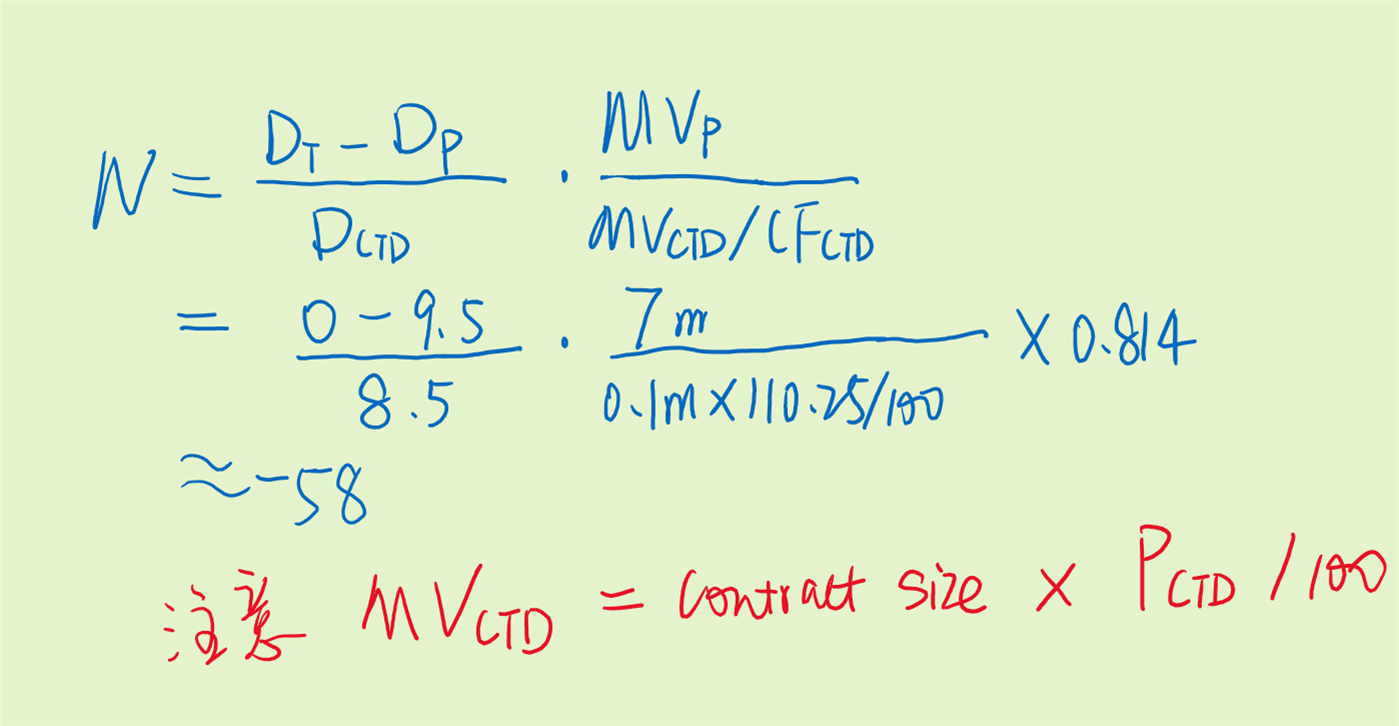 N = (D_T - D_P) / D_CTD · MV_P / (MV_CTD / CF_CTD)
= (0 - 9.5) / 8.5 · 7m / (0.1m × 110.25/100) × 0.814
≈ -58
注意 MV_CTD = contract size × P_CTD / 100